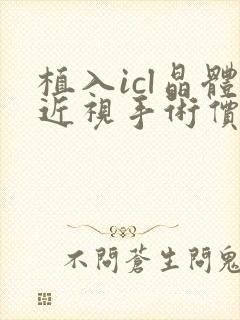 植入icl晶體
近視手術價
不問蒼生問鬼